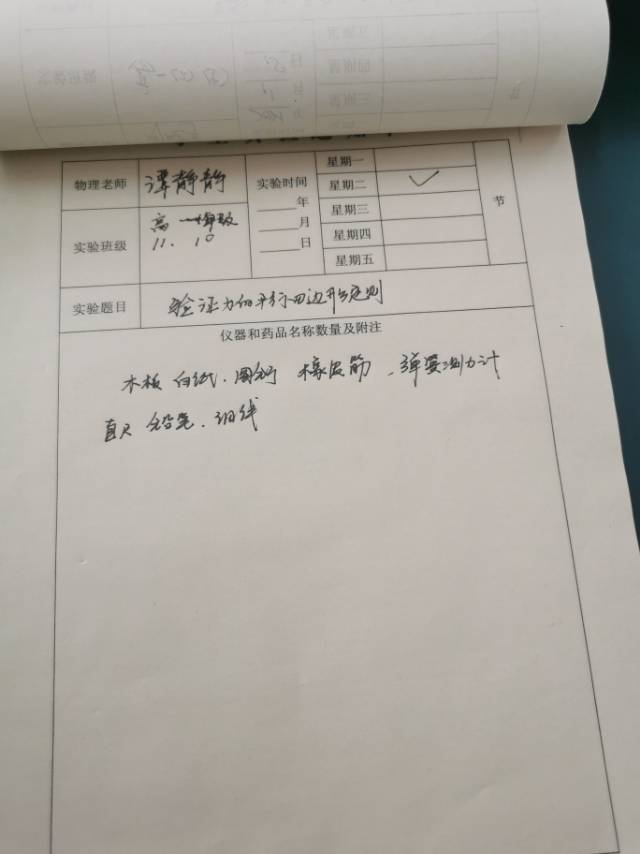 物理老师 谭静静 实验时间 星期一
____年 星期二 ✓
实验班级 高一年级 ____月 星期三 节
11. 10 ____日 星期四
星期五
实验题目 验证力的平行四边形定则
仪器和药品名称数量及附注
木板 白纸、图钉 橡皮筋、弹簧测力计
直尺 铅笔、细线